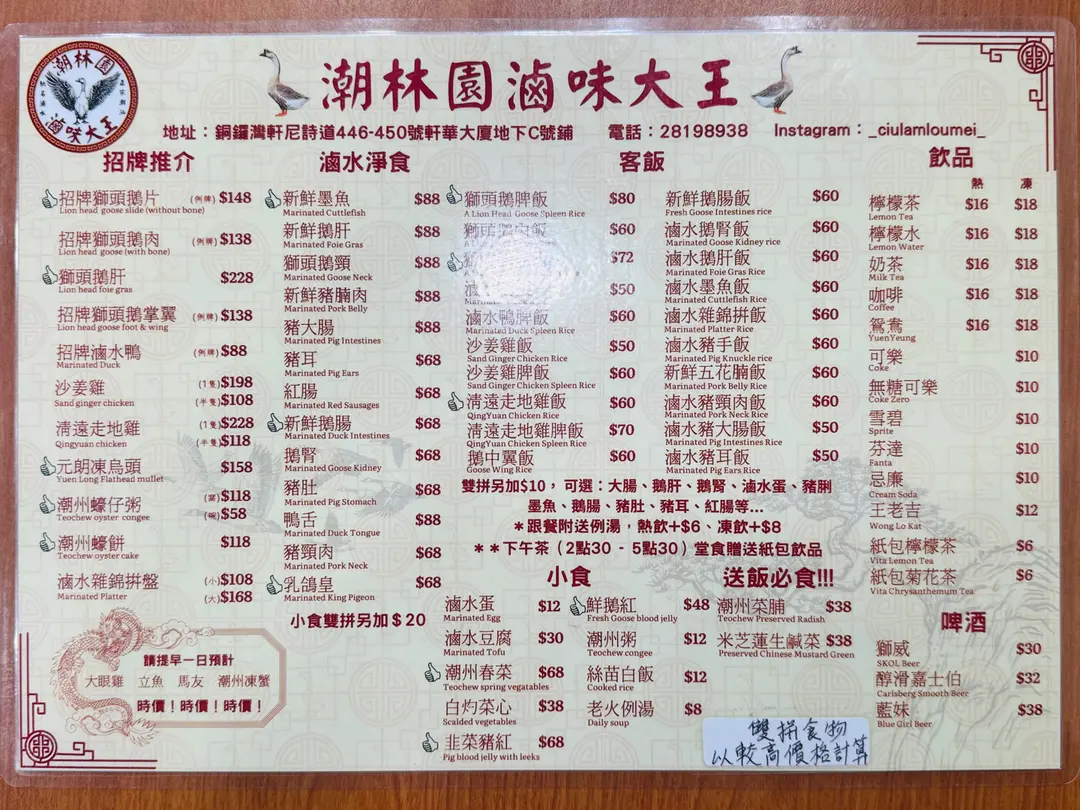 潮林園
滷味大王
潮林園滷味大王
地址：銅鑼灣軒尼詩道446-450號軒華大廈地下C號鋪 電話：28198938 Instagram：_ciulamloumei_
招牌推介
招牌獅頭鵝片 (例牌) $148
Lion head goose slide (without bone)
招牌獅頭鵝肉 (例牌) $138
Lion head goose (with bone)
獅頭鵝肝 $228
Lion head foie gras
招牌獅頭鵝掌翼 (例牌) $138
Lion head goose foot & wing
招牌滷水鴨 (例牌) $88
Marinated Duck
沙姜雞 (1隻) $198
Sand ginger chicken (半隻) $108
清遠走地雞 (1隻) $228
Qingyuan chicken (半隻) $118
元朗凍烏頭 $158
Yuen Long Flathead mullet
潮州蠔仔粥 (窩) $118
Teochew oyster congee (碗) $58
潮州蠔餅 $118
Teochew oyster cake
滷水雜錦拼盤 (小) $108
Marinated Platter (大) $168
請提早一日預計
大眼雞 立魚 馬友 潮州凍蟹
時價！時價！時價！
滷水淨食
新鮮墨魚 $88
Marinated Cuttlefish
新鮮鵝肝 $88
Marinated Foie Gras
獅頭鵝頸 $88
Marinated Goose Neck
新鮮豬腩肉 $88
Marinated Pork Belly
豬大腸 $88
Marinated Pig Intestines
豬耳 $68
Marinated Pig Ears
紅腸 $68
Marinated Red Sausages
新鮮鵝腸 $68
Marinated Duck Intestines
鵝腎 $68
Marinated Goose Kidney
豬肚 $68
Marinated Pig Stomach
鴨舌 $88
Marinated Duck Tongue
豬頸肉 $68
Marinated Pork Neck
乳鴿皇 $68
Marinated King Pigeon
小食雙拼另加＄20
客飯
獅頭鵝脾飯 $80
A Lion Head Goose Spleen Rice
獅頭鵝肉飯 $60
$72
$50
滷水鴨脾飯 $60
Marinated Duck Spleen Rice
沙姜雞飯 $50
Sand Ginger Chicken Rice
沙姜雞脾飯 $60
Sand Ginger Chicken Spleen Rice
清遠走地雞飯 $60
QingYuan Chicken Rice
清遠走地雞脾飯 $70
QingYuan Chicken Spleen Rice
鵝中翼飯 $60
Goose Wing Rice
新鮮鵝腸飯 $60
Fresh Goose Intestines rice
滷水鵝腎飯 $60
Marinated Goose Kidney rice
滷水鵝肝飯 $60
Marinated Foie Gras Rice
滷水墨魚飯 $60
Marinated Cuttlefish Rice
滷水雜錦拼飯 $60
Marinated Platter Rice
滷水豬手飯 $60
Marinated Pig Knuckle rice
新鮮五花腩飯 $60
Marinated Pork Belly Rice
滷水豬頸肉飯 $60
Marinated Pork Neck Rice
滷水豬大腸飯 $50
Marinated Pig Intestines Rice
滷水豬耳飯 $50
Marinated Pig Ears Rice
雙拼另加$10， 可選：大腸、鵝肝、鵝腎、滷水蛋、豬脷
墨魚、鵝腸、豬肚、豬耳、紅腸等...
＊跟餐附送例湯，熱飲+$6、凍飲+$8
＊＊下午茶（2點30 - 5點30）堂食贈送紙包飲品
小食
滷水蛋 $12
Marinated Egg
滷水豆腐 $30
Marinated Tofu
潮州春菜 $68
Teochew spring vegatables
白灼菜心 $38
Scalded vegetables
韭菜豬紅 $68
Pig blood jelly with leeks
鮮鵝紅 $48
Fresh Goose blood jelly
潮州粥 $12
Teochew congee
絲苗白飯 $12
Cooked rice
老火例湯 $8
Daily soup
送飯必食!!!
潮州菜脯 $38
Teochew Preserved Radish
米芝蓮生鹹菜 $38
Preserved Chinese Mustard Green
雙拼食物
以較高價格計算
飲品
熱 凍
檸檬茶 $16 $18
Lemon Tea
檸檬水 $16 $18
Lemon Water
奶茶 $16 $18
Milk Tea
咖啡 $16 $18
Coffee
鴛鴦 $16 $18
YuenYeung
可樂 $10
Coke
無糖可樂 $10
Coke Zero
雪碧 $10
Sprite
芬達 $10
Fanta
忌廉 $10
Cream Soda
王老吉 $12
Wong Lo Kat
紙包檸檬茶 $6
Vita Lemon Tea
紙包菊花茶 $6
Vita Chrysanthemum Tea
啤酒
獅威 $30
SKOL Beer
醇滑嘉士伯 $32
Carlsberg Smooth Beer
藍妹 $38
Blue Girl Beer